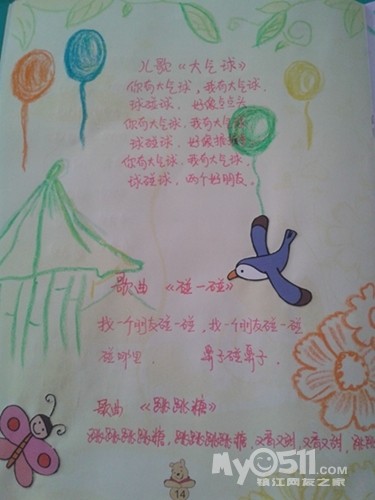 儿歌《大气球》
你有大气球,我有大气球.
球碰球,好像点点头
你有大气球,我有大气球
球碰球,好像
你有大气球,我有大气球.
球碰球,两个好朋友。
歌曲 《碰一碰》
找一个朋友碰一碰,找一个朋友碰一碰
碰哪里. 鼻子碰鼻子.
歌曲 《跳跳糖》
跳跳跳跳糖,跳跳跳跳糖,又高又
14
My0511.com
镇江网友之家